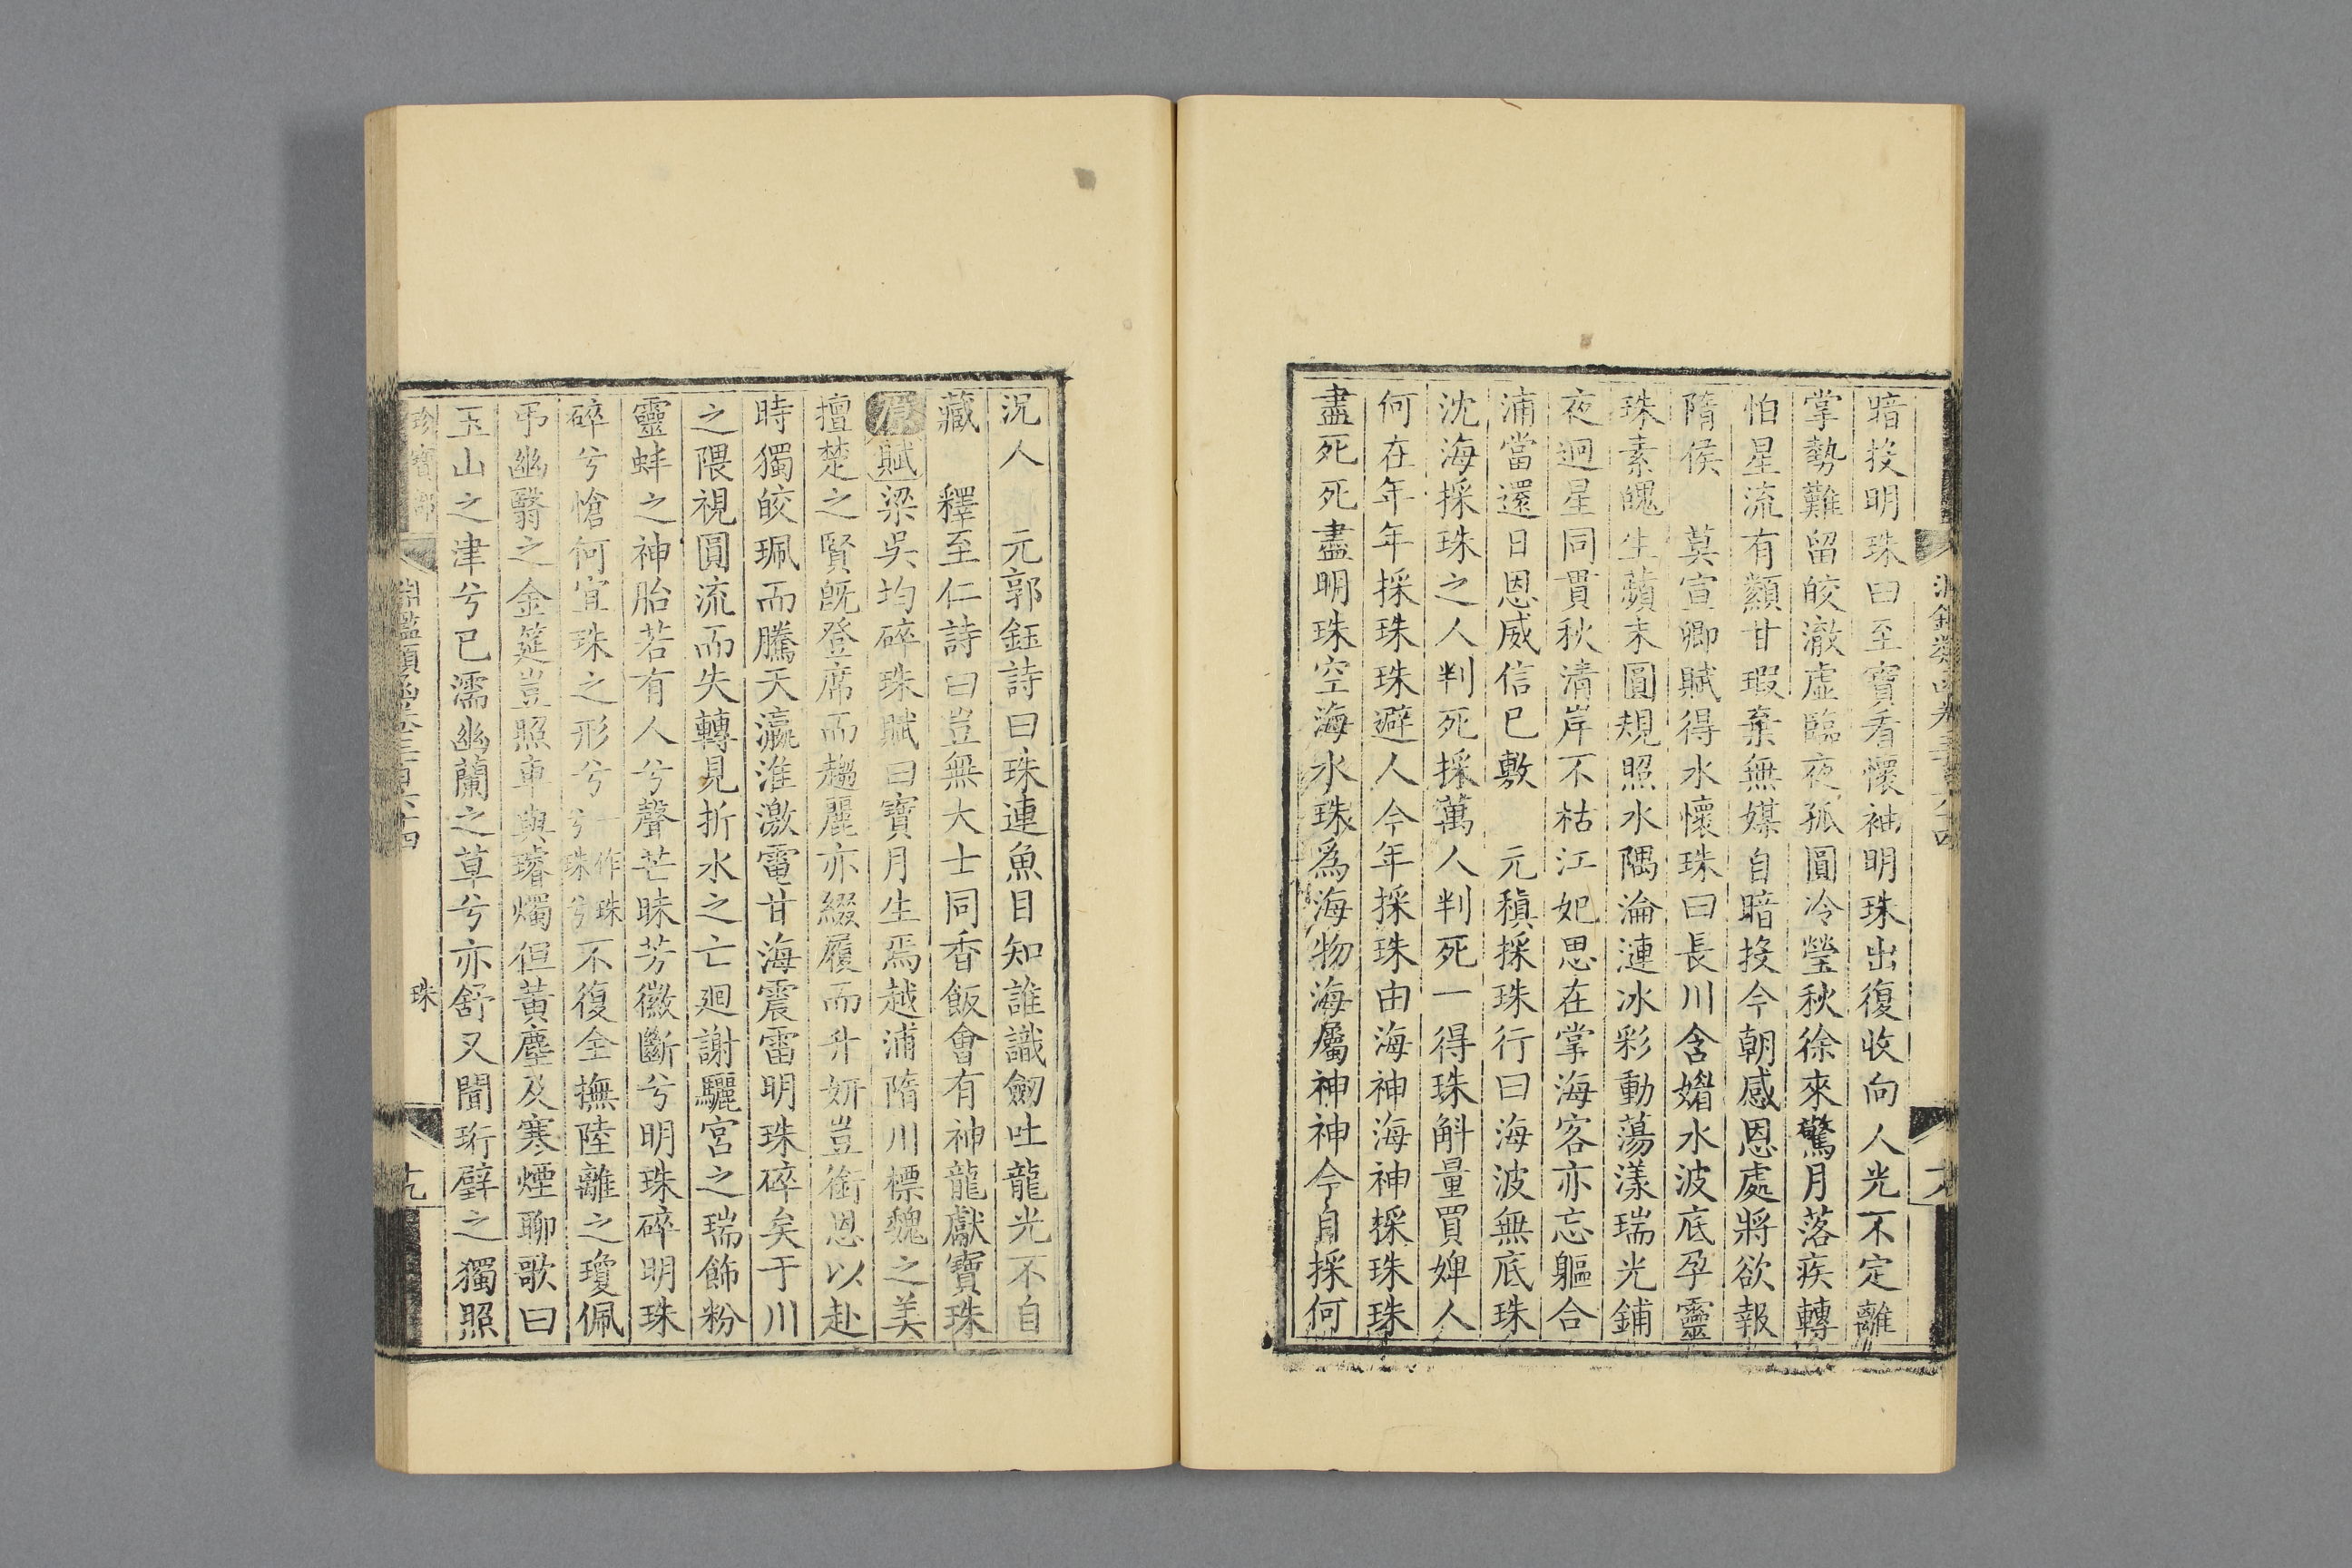 暗投明珠曰至寶看懷袖明珠出復收向人光不定離
掌勢難留皎澈虛臨夜孤圓冷瑩秋徐來驚月落疾轉
怕星流有顏甘瑕棄無媒自暗投今朝感恩處將欲報
隋侯　莫宣卿賦得水懷珠曰長川含媚水波底孕靈
珠素魄生蘋末圓規照水隅淪漣冰彩動蕩漾瑞光鋪
夜迥星同貫秋清岸不枯江妃思在掌海客亦忘軀合
浦當還日恩威信已敷　元稹採珠行曰海波無底珠
沈海採珠之人判死採萬人判死一得珠斛量買婢人
何在年年採珠珠避人今年採珠由海神海神採珠珠
盡死死盡明珠空海水珠為海物海屬神神今自採何
況人　元郭鈺詩曰珠連魚目知誰識劒吐龍光不自
藏　釋至仁詩曰豈無大士同香飯會有神龍獻寶珠
賦梁吳均碎珠賦曰寶月生焉越浦隋川標魏之美
擅楚之賢旣登席而趨麗亦綴履而升妍豈銜恩以赴
時獨皎珮而騰天瀛淮激電甘海震雷明珠碎矣于川
之隈視圓流而失轉見折水之亡廻謝驪宮之瑞飾粉
靈蚌之神胎若有人兮聲芒昧芳徽斷兮明珠碎明珠
碎兮愴何宜珠之形兮一作珠兮珠兮不復全撫陸離之瓊佩
弔幽翳之金筵豈照車與璿燭但黃塵及寒煙聊歌曰
玉山之津兮已濡幽蘭之草兮亦舒又聞珩璧之獨照
珍寶部
淵鑑類函卷三百六十四
珠
十九